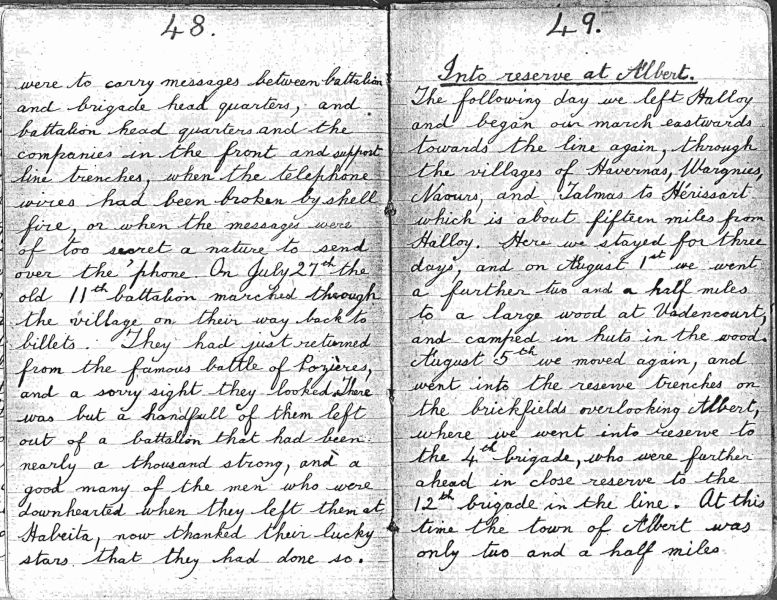 48.
were to carry messages between battalion
and brigade head quarters, and
battalion head quarters and the
companies in the front and support
line trenches, when the telephone
wires had been broken by shell
fire, or when the messages were
of too secret a nature to send
over the 'phone. On July 27th the
old 11th battalion marched through
the village on their way back to
billets. They had just returned
from the famous battle of Pozières,
and a sorry sight they looked. There
was but a handfull of them left
out of a battalion that had been
nearly a thousand strong, and a
good many of the men who were
downhearted when they left them at
Habeita, now thanked their lucky
stars that they had done so.
49.
Into reserve at Albert.
The following day we left Halloy
and began our march eastwards
towards the line again, through
the villages of Havernas, Wargnies,
Naours, and Talmas to Hérissart
which is about fifteen miles from
Halloy. Here we stayed for three
days, and on August 1st we went
a further two and a half miles
to a large wood at Vadencourt,
and camped in huts in the wood.
August 5th we moved again, and
went into the reserve trenches on
the brickfields overlooking Albert,
where we went into reserve to
the 4th brigade, who were further
ahead in close reserve to the
12th brigade in the line. At this
time the town of Albert was
only two and a half miles